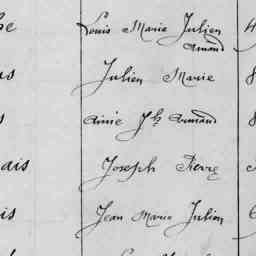 Louis Marie Julien
Armand
Julien Marie
Aimé Jh Armand
ais Joseph Pierre
is Jean Marie Julien